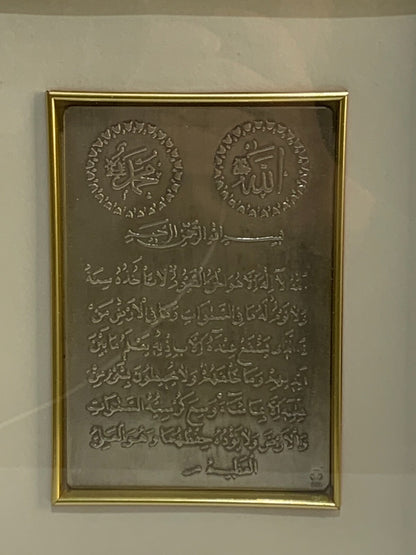 الله
محمد
بسم الله الرحمن الرحيم
الله لا اله الا هو الحي القيوم لا تأخذه سنة
ولا نوم له ما في السموات وما في الأرض من
ذا الذي يشفع عنده الا بإذنه يعلم ما بين
ايديهم وما خلفهم ولا يحيطون بشئ من
علمه الا بما شاء وسع كرسيه السموات
والأرض ولا يؤده حفظهما وهو العلي
العظيم